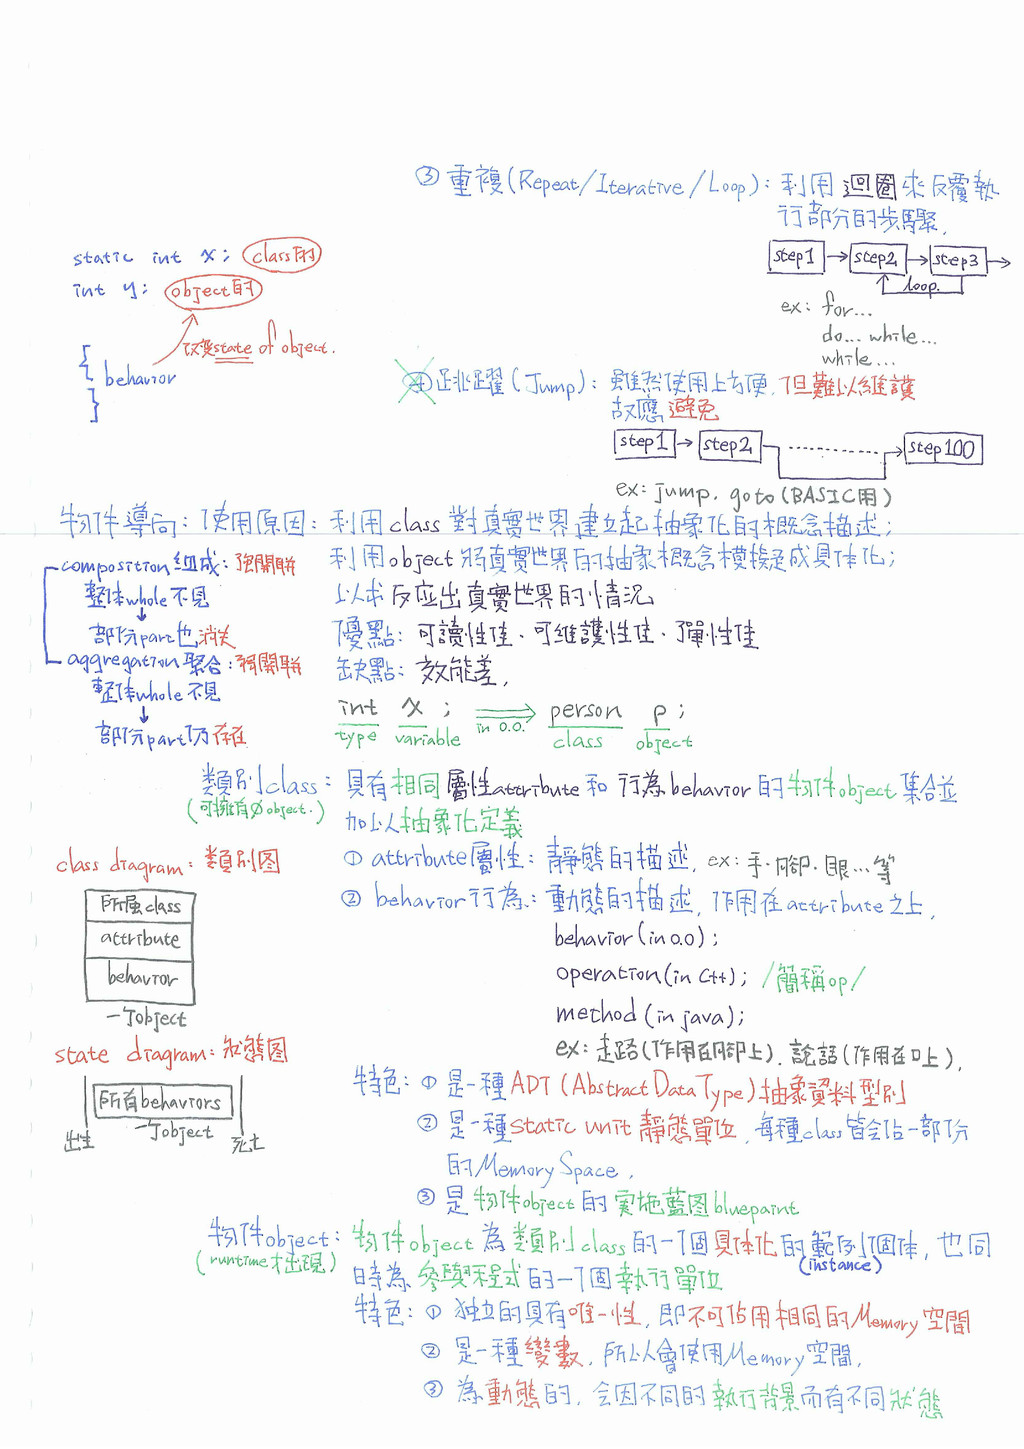 ③ 重複(Repeat/Iterative/Loop): 利用迴圈來反覆執
行部分的步驟.
step1 → step2 → step3 →
loop.
ex: for...
do... while...
while...
static int x; class的
int y; object的
改變state of object.
{
behavior
}
④ 跳躍(Jump): 雖然使用上方便, 但難以維護
故應避免
step1 → step2 ........... step100
ex: jump, goto (BASIC用)
物件導向: 使用原因: 利用class對真實世界建立起抽象化的概念描述;
利用object將真實世界的抽象概念模擬成具体化;
以求反应出真實世界的情況
優點: 可讀性佳、可維護性佳、彈性佳
缺點: 效能差.
composition 組成: 強關聯
整体whole不見
↓
部份part也消失
aggregation 聚合: 弱關聯
整体whole不見
↓
部份part仍存在
int x ; ⟹ person p ;
type variable in O.O. class object
類別class: 具有相同屬性attribute和行為behavior的物件object集合並
(可擁有∅ object.)
加以抽象化定義
① attribute屬性: 靜態的描述, ex: 手.腳.眼...等
② behavior行為: 動態的描述, 作用在attribute之上,
behavior (in O.O);
operation (in C++); /簡稱op/
method (in java);
ex: 走路(作用在腳上). 說話(作用在口上),
class diagram: 類別図
所属class
attribute
behavior
一个object
state diagram: 狀態図
所有behaviors
一个object
出生 死亡
特色: ① 是一種ADT (Abstract Data Type)抽象資料型別
② 是一種static unit 靜態單位, 每種class皆会佔一部份
的Memory Space.
③ 是物件object的實施藍図bluepaint
物件object: 物件object為類別class的一個具体化的範例個体, 也同
(runtime才出現)
(instance)
時為參與程式的一個執行單位
特色: ① 獨立的具有唯一性, 即不可佔用相同的Memory空間
② 是一種變數, 所以會使用Memory空間,
③ 為動態的, 会因不同的執行背景而有不同狀態